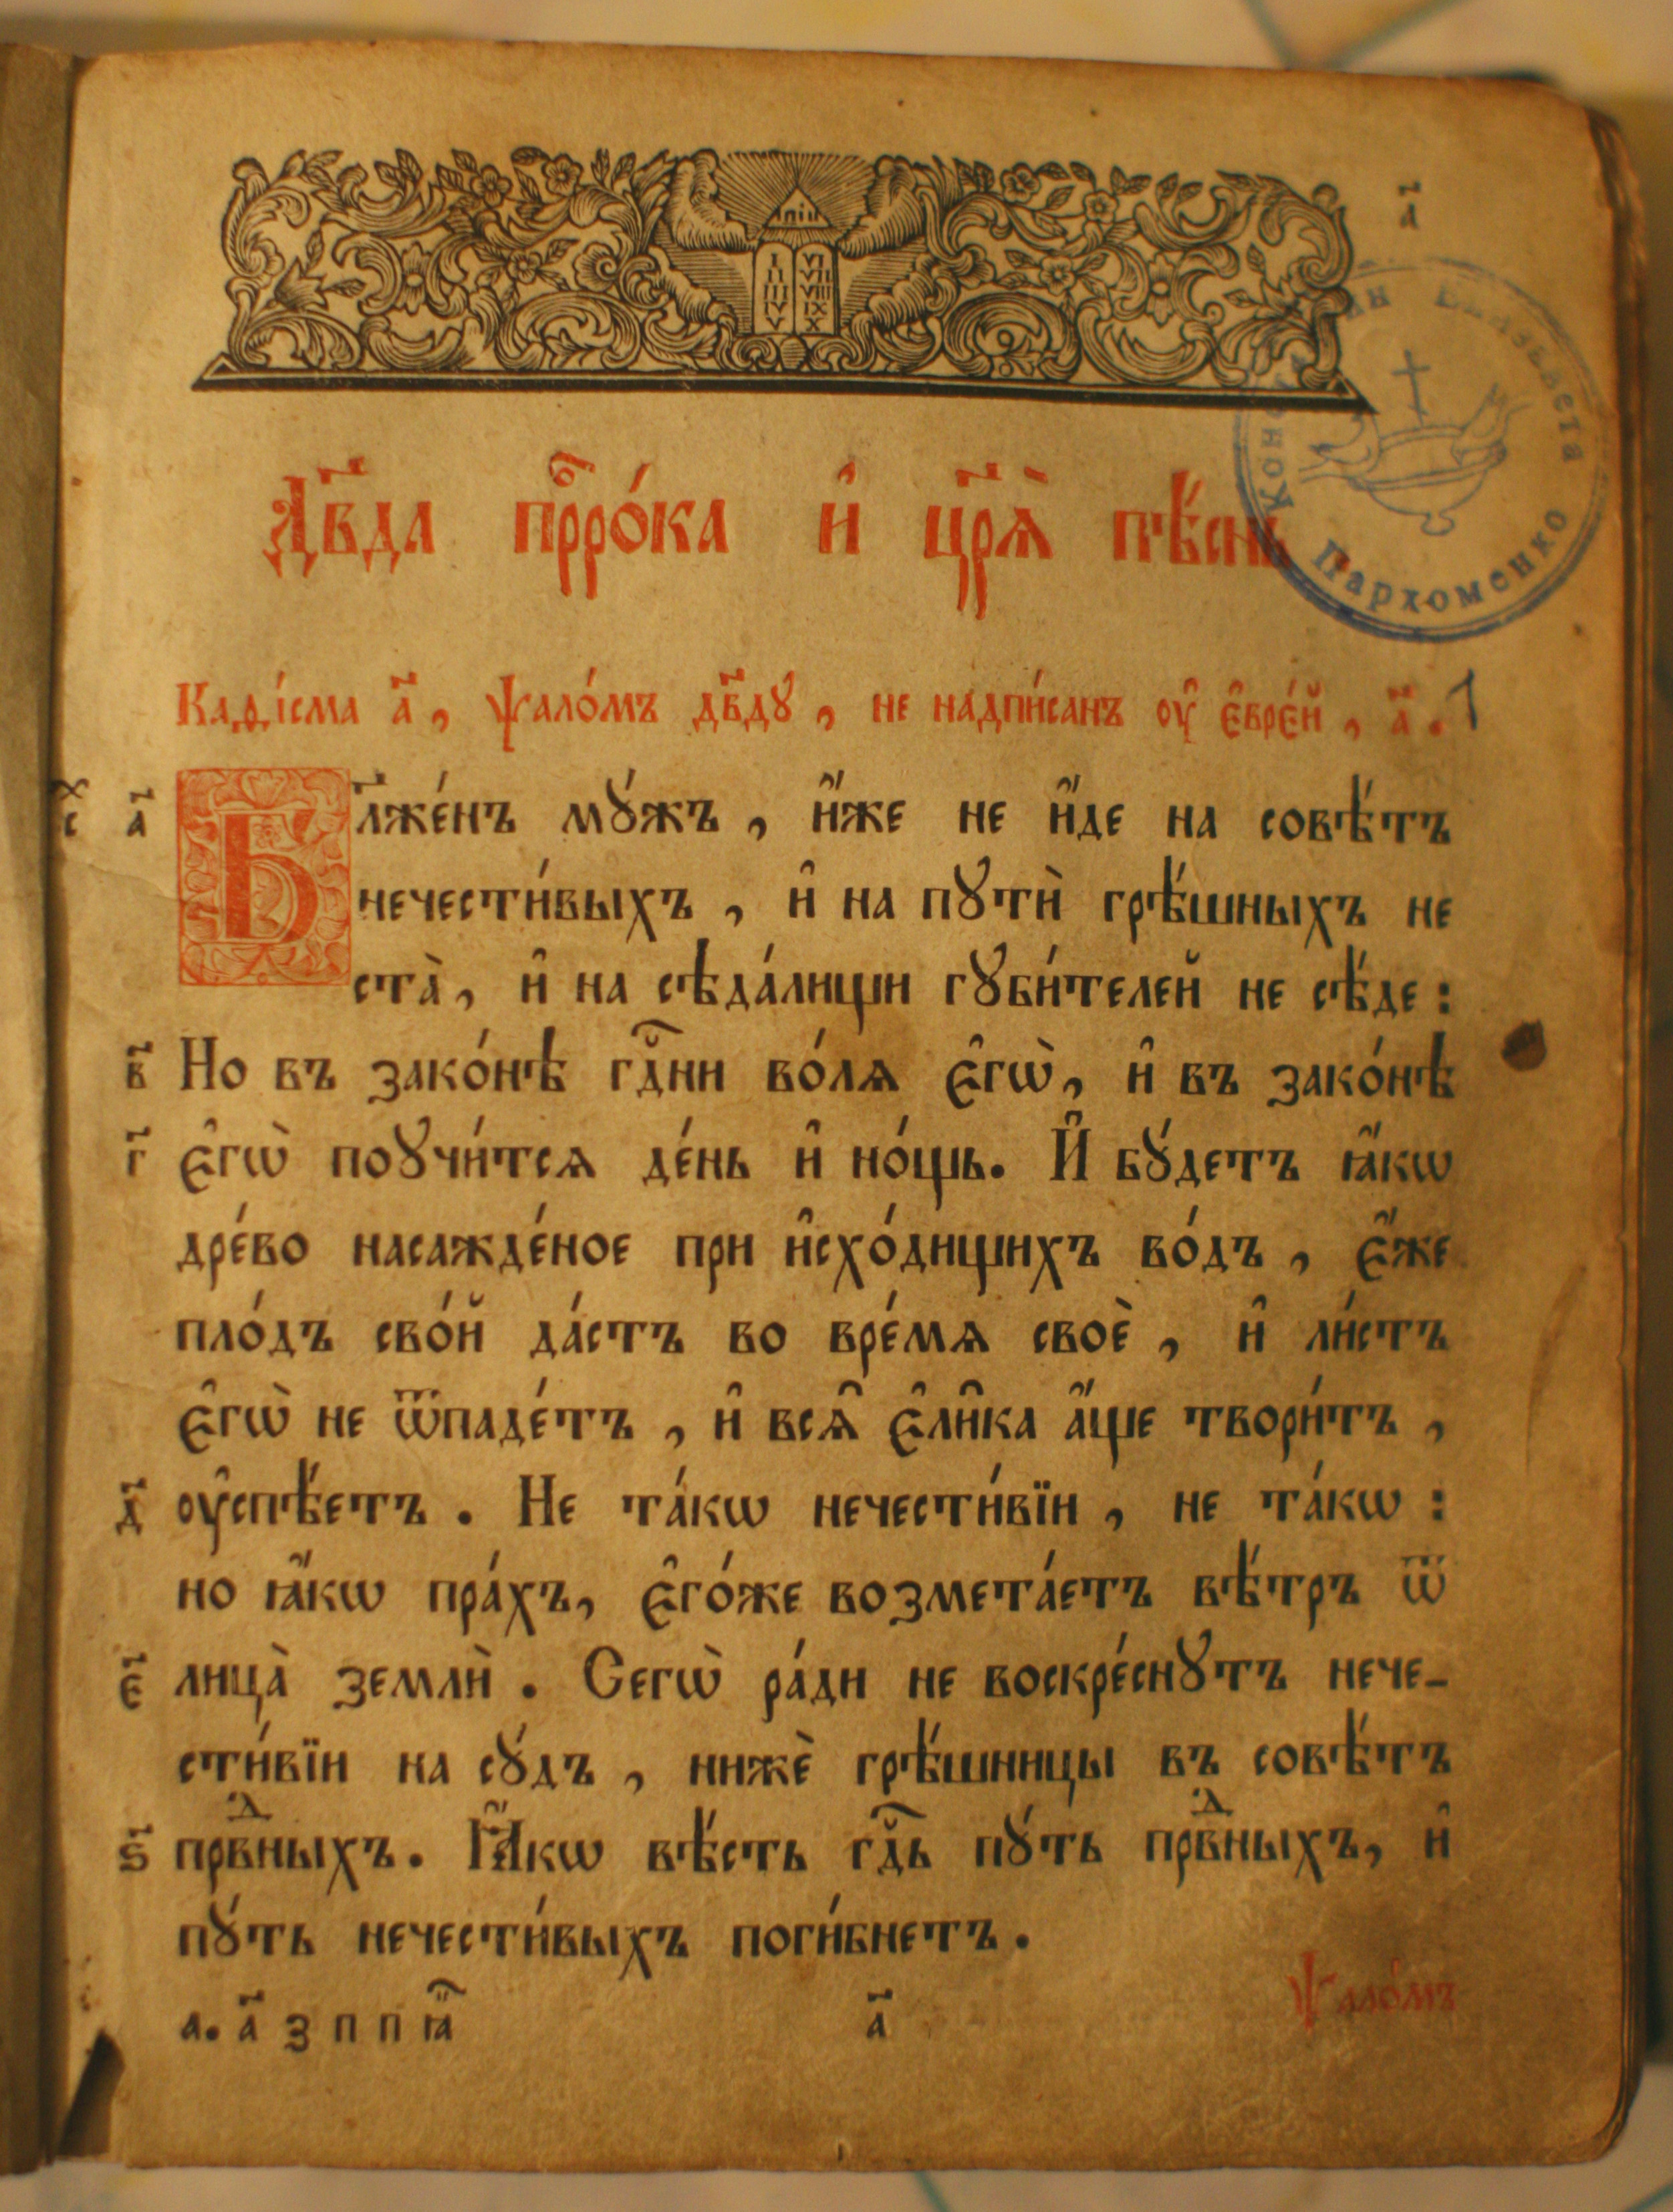 а҃
І VI
ІІ VII
ІІІ VIII
IV IX
V X
Дв҃да прⷪ҇ро́ка и҆ цр҃ѧ̀ пѣ́снь
Елизавета
Пархоменко
Каѳі́сма а҃, ѱало́мъ дв҃дꙋ, не надпи́санъ ᲂу҆ є҆вре́й, а҃. 1
а҃ Бл҃же́нъ мꙋ́жъ, и҆́же не и҆́де на совѣ́тъ
нечести́выхъ, и҆ на пꙋтѝ грѣ́шныхъ не
ста̀, и҆ на сѣда́лищи гꙋби́телей не сѣ́де:
в҃ Но въ зако́нѣ гдⷭ҇ни во́лѧ є҆гѡ̀, и҆ въ зако́нѣ
г҃ є҆гѡ̀ поꙋчи́тсѧ де́нь и҆ но́щь. И҆ бꙋ́детъ ꙗ҆́кѡ
дре́во насажде́ное при и҆схо́дищихъ во́дъ, є҆́же
пло́дъ сво́й да́стъ во вре́мѧ своѐ, и҆ ли́стъ
є҆гѡ̀ не ѿпаде́тъ, и҆ всѧ҄ є҆ли҄ка а҆́ще твори́тъ,
д҃ ᲂу҆спѣ́етъ. Не та́кѡ нечести́вїи, не та́кѡ:
но ꙗ҆́кѡ пра́хъ, є҆го́же возмета́етъ вѣ́тръ ѿ
є҃ лица̀ землѝ. Сегѡ̀ ра́ди не воскре́снꙋтъ нече-
сти́вїи на сꙋ́дъ, нижѐ грѣ́шницы въ совѣ́тъ
ѕ҃ првⷣныхъ. Ꙗ҆́кѡ вѣ́сть гдⷭ҇ь пꙋ́ть првⷣныхъ, и҆
пꙋ́ть нечести́выхъ поги́бнетъ.
а. а҃ з п п ꙗ҃ а҃ Ѱало́мъ